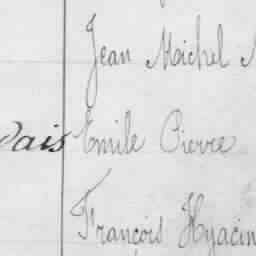 Jean Michel
dais Emile Pierre
François Hyacin